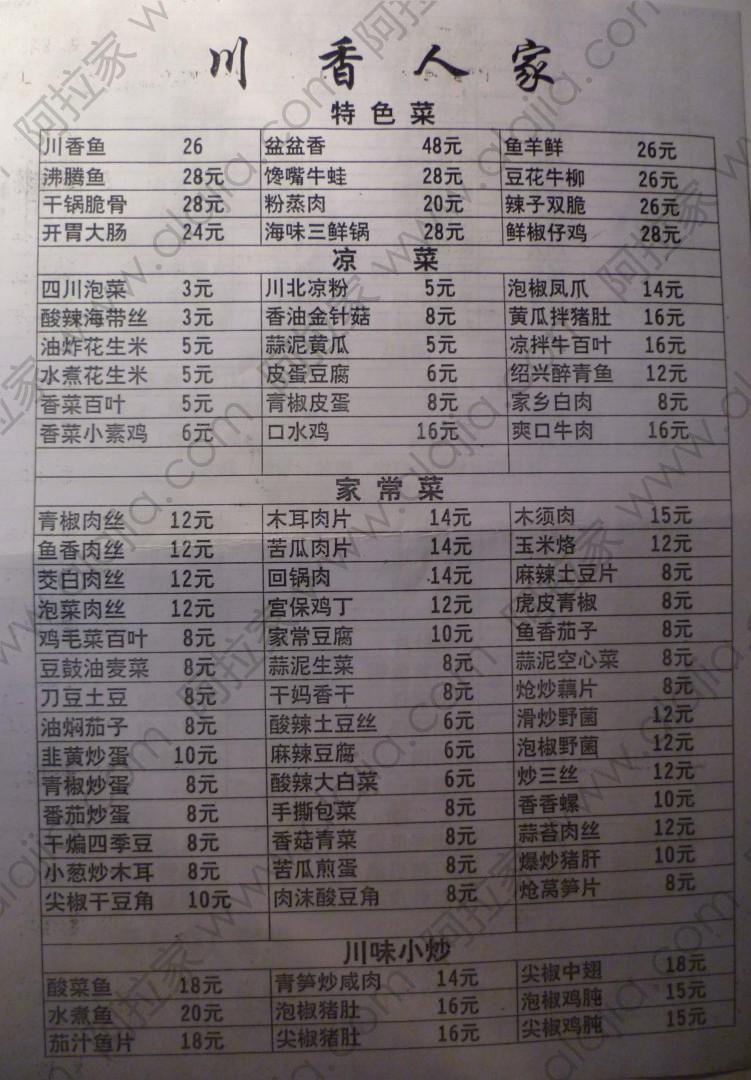 川香人家
特色菜
川香鱼 26 盆盆香 48元 鱼羊鲜 26元
沸腾鱼 28元 馋嘴牛蛙 28元 豆花牛柳 26元
干锅脆骨 28元 粉蒸肉 20元 辣子双脆 26元
开胃大肠 24元 海味三鲜锅 28元 鲜椒仔鸡 28元
凉菜
四川泡菜 3元 川北凉粉 5元 泡椒凤爪 14元
酸辣海带丝 3元 香油金针菇 8元 黄瓜拌猪肚 16元
油炸花生米 5元 蒜泥黄瓜 5元 凉拌牛百叶 16元
水煮花生米 5元 皮蛋豆腐 6元 绍兴醉青鱼 12元
香菜百叶 5元 青椒皮蛋 8元 家乡白肉 8元
香菜小素鸡 6元 口水鸡 16元 爽口牛肉 16元
家常菜
青椒肉丝 12元 木耳肉片 14元 木须肉 15元
鱼香肉丝 12元 苦瓜肉片 14元 玉米烙 12元
茭白肉丝 12元 回锅肉 14元 麻辣土豆片 8元
泡菜肉丝 12元 宫保鸡丁 12元 虎皮青椒 8元
鸡毛菜百叶 8元 家常豆腐 10元 鱼香茄子 8元
豆鼓油麦菜 8元 蒜泥生菜 8元 蒜泥空心菜 8元
刀豆土豆 8元 干妈香干 8元 炝炒藕片 8元
油焖茄子 8元 酸辣土豆丝 6元 滑炒野菌 12元
韭黄炒蛋 10元 麻辣豆腐 6元 泡椒野菌 12元
青椒炒蛋 8元 酸辣大白菜 6元 炒三丝 12元
番茄炒蛋 8元 手撕包菜 8元 香香螺 10元
干煸四季豆 8元 香菇青菜 8元 蒜苔肉丝 12元
小葱炒木耳 8元 苦瓜煎蛋 8元 爆炒猪肝 10元
尖椒干豆角 10元 肉沫酸豆角 8元 炝莴笋片 8元
川味小炒
酸菜鱼 18元 青笋炒咸肉 14元 尖椒中翅 18元
水煮鱼 20元 泡椒猪肚 16元 泡椒鸡肫 15元
茄汁鱼片 18元 尖椒猪肚 16元 尖椒鸡肫 15元
阿拉家 www.alajia.com